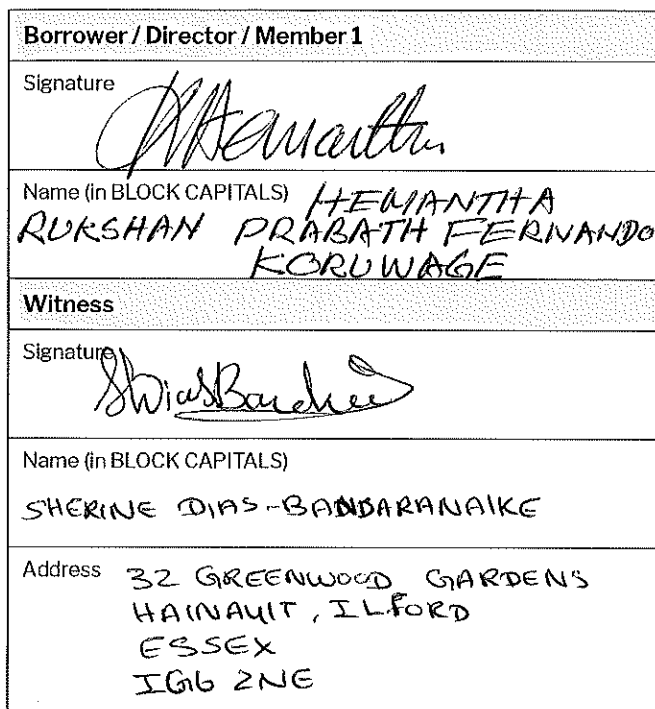 Borrower / Director / Member 1
Signature
Hemantha
Name (in BLOCK CAPITALS) HEMANTHA
RUKSHAN PRABATH FERNANDO
KORUWAGE
Witness
Signature
Name (in BLOCK CAPITALS)
SHERINE DIAS-BANDARANAIKE
Address 32 GREENWOOD GARDENS
HAINAULT, ILFORD
ESSEX
IG6 2NE